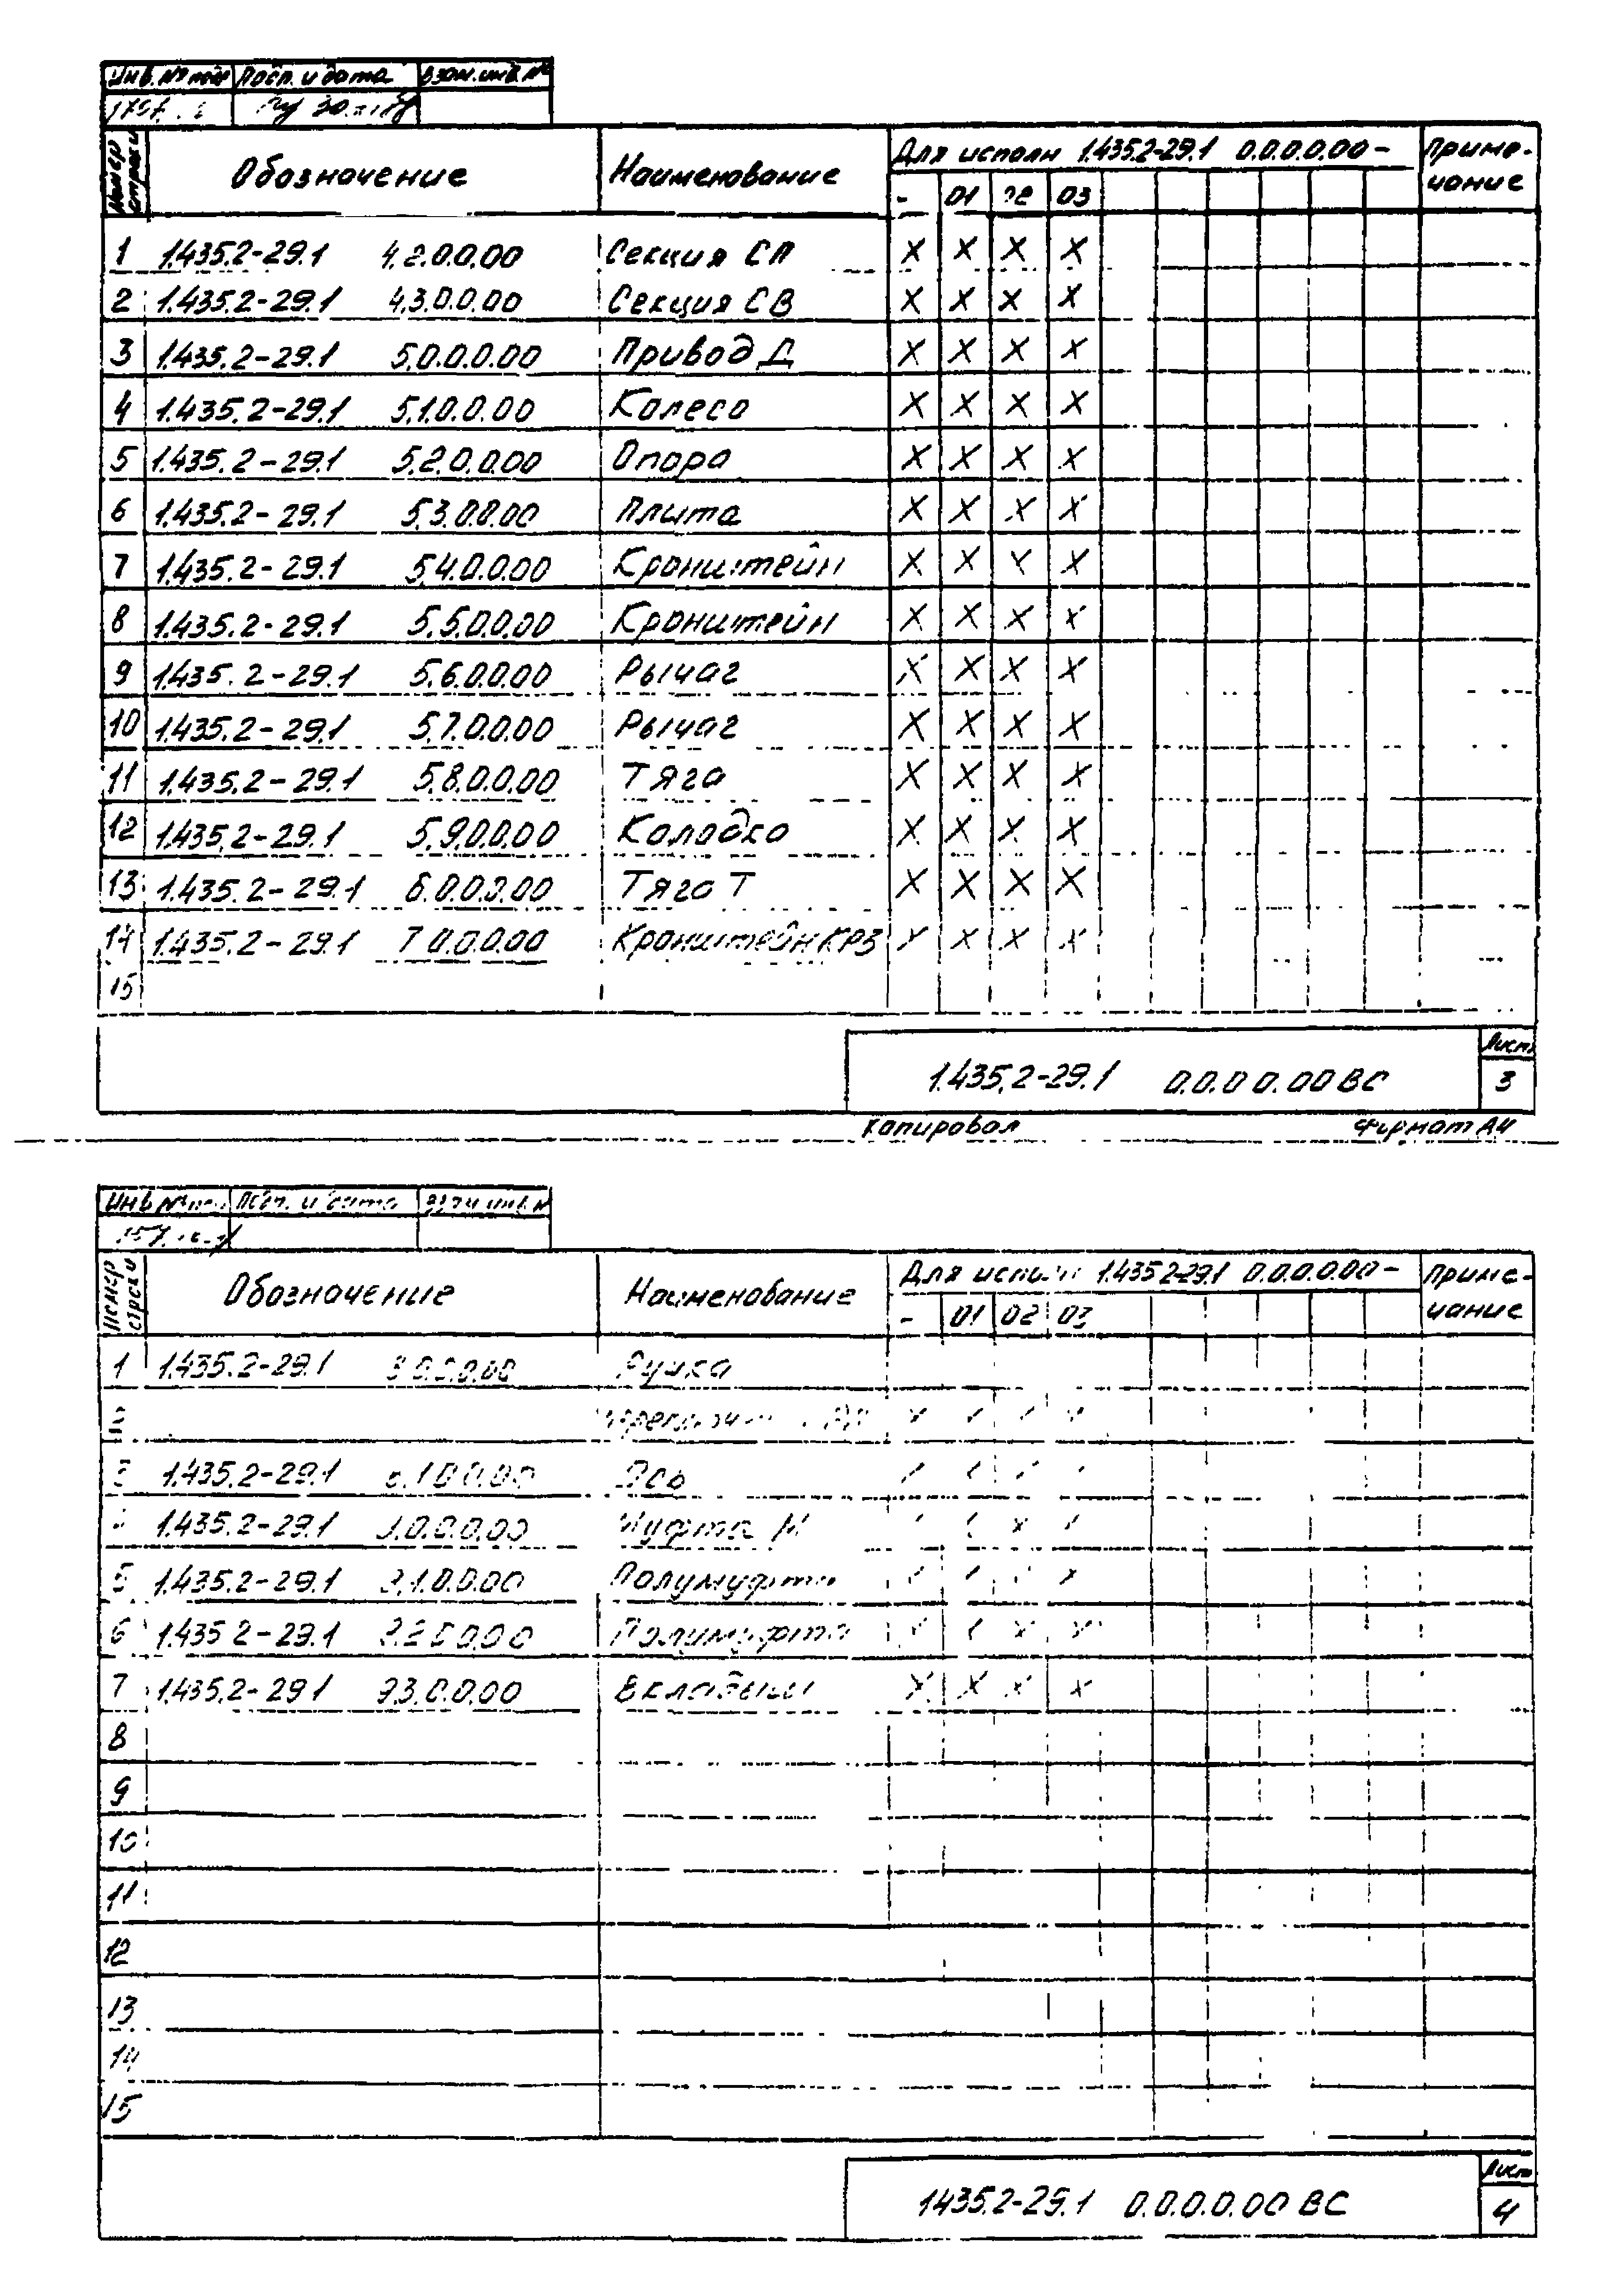 Инв. № подл. Подп. и дата Взам. инв. №
Номер строки Обозначение Наименование Для исполн 1.435.2-29.1 0.0.0.0.00- Примечание
- 01 02 03
1 1.435.2-29.1 4.2.0.0.00 Секция СП X X X X
2 1.435.2-29.1 4.3.0.0.00 Секция СВ X X X X
3 1.435.2-29.1 5.0.0.0.00 Привод Д X X X X
4 1.435.2-29.1 5.1.0.0.00 Колесо X X X X
5 1.435.2-29.1 5.2.0.0.00 Опора X X X X
6 1.435.2-29.1 5.3.0.0.00 Плита X X X X
7 1.435.2-29.1 5.4.0.0.00 Кронштейн X X X X
8 1.435.2-29.1 5.5.0.0.00 Кронштейн X X X X
9 1.435.2-29.1 5.6.0.0.00 Рычаг X X X X
10 1.435.2-29.1 5.7.0.0.00 Рычаг X X X X
11 1.435.2-29.1 5.8.0.0.00 Тяга X X X X
12 1.435.2-29.1 5.9.0.0.00 Колодка X X X X
13 1.435.2-29.1 6.0.0.0.00 Тяга Т X X X X
14 1.435.2-29.1 7.0.0.0.00 Кронштейн КР3 X X X X
15
1.435.2-29.1 0.0.0.0.00 ВС Лист 3
Копировал Формат А4
Инв. № подл. Подп. и дата Взам. инв. №
Номер строки Обозначение Наименование Для исполн 1.435.2-29.1 0.0.0.0.00- Примечание
- 01 02 03
1 1.435.2-29.1 Ручка
2 X X X X
3 1.435.2-29.1 Ось
4 1.435.2-29.1 9.0.0.0.00 Муфта М
5 1.435.2-29.1 9.1.0.0.00 Полумуфта
6 1.435.2-29.1 9.2.0.0.00 Полумуфта X X X X
7 1.435.2-29.1 9.3.0.0.00 Вкладыш X X X X
8
9
10
11
12
13
14
15
1.435.2-29.1 0.0.0.0.00 ВС Лист 4